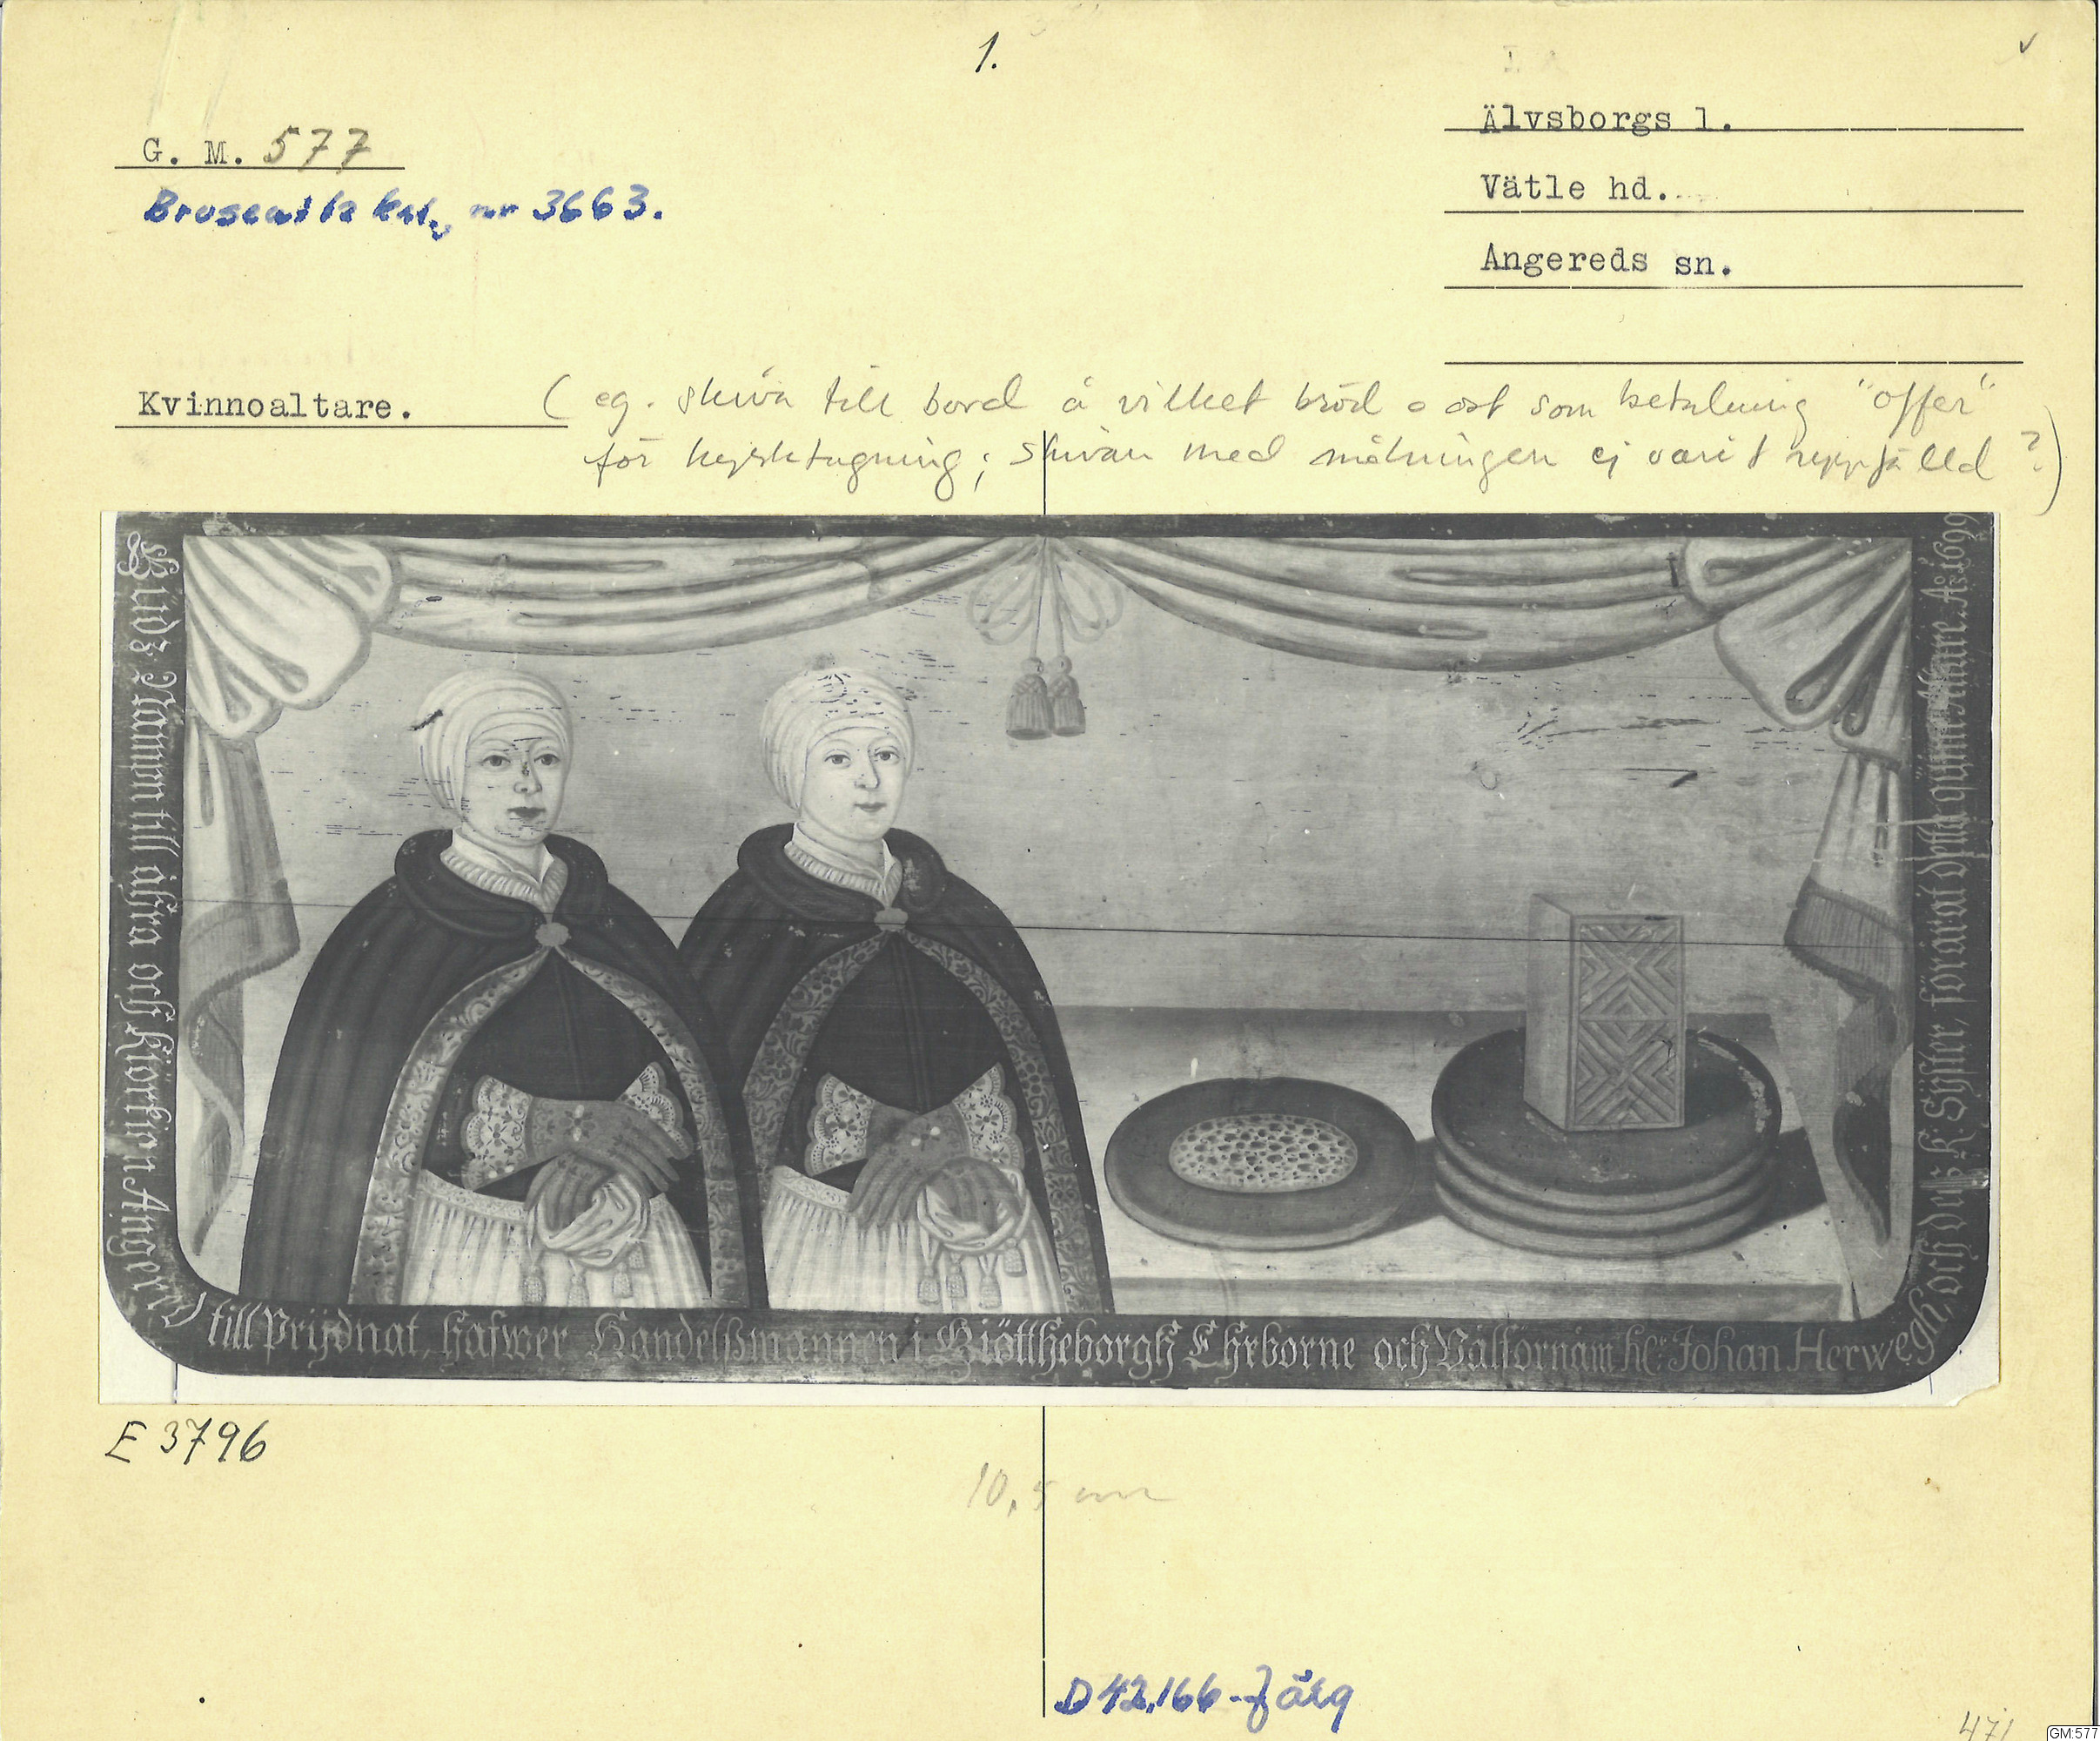 1.
G. M. 577
Broseutke kat., nr 3663.
Älvsborgs l.
Vätle hd.
Angereds sn.
Kvinnoaltare.
(eg. skiva till bord å vilket bröd o ost som betalning "offer"
för kyrktagning; skivan med målningen ej varit uppfälld?)
Gudz Nampn till ähra och Kiörkion Angered
till Prijdnat, hafwer Handelßmannen i Giöttheborgh Ehrborne och Wälförnäm hr: Johan Herwegh,
och deß K: Syster, förärat detta quinne Altare. Aō: 1699
E 3796
10,5 cm
D 42.166 - färg
471
GM:577